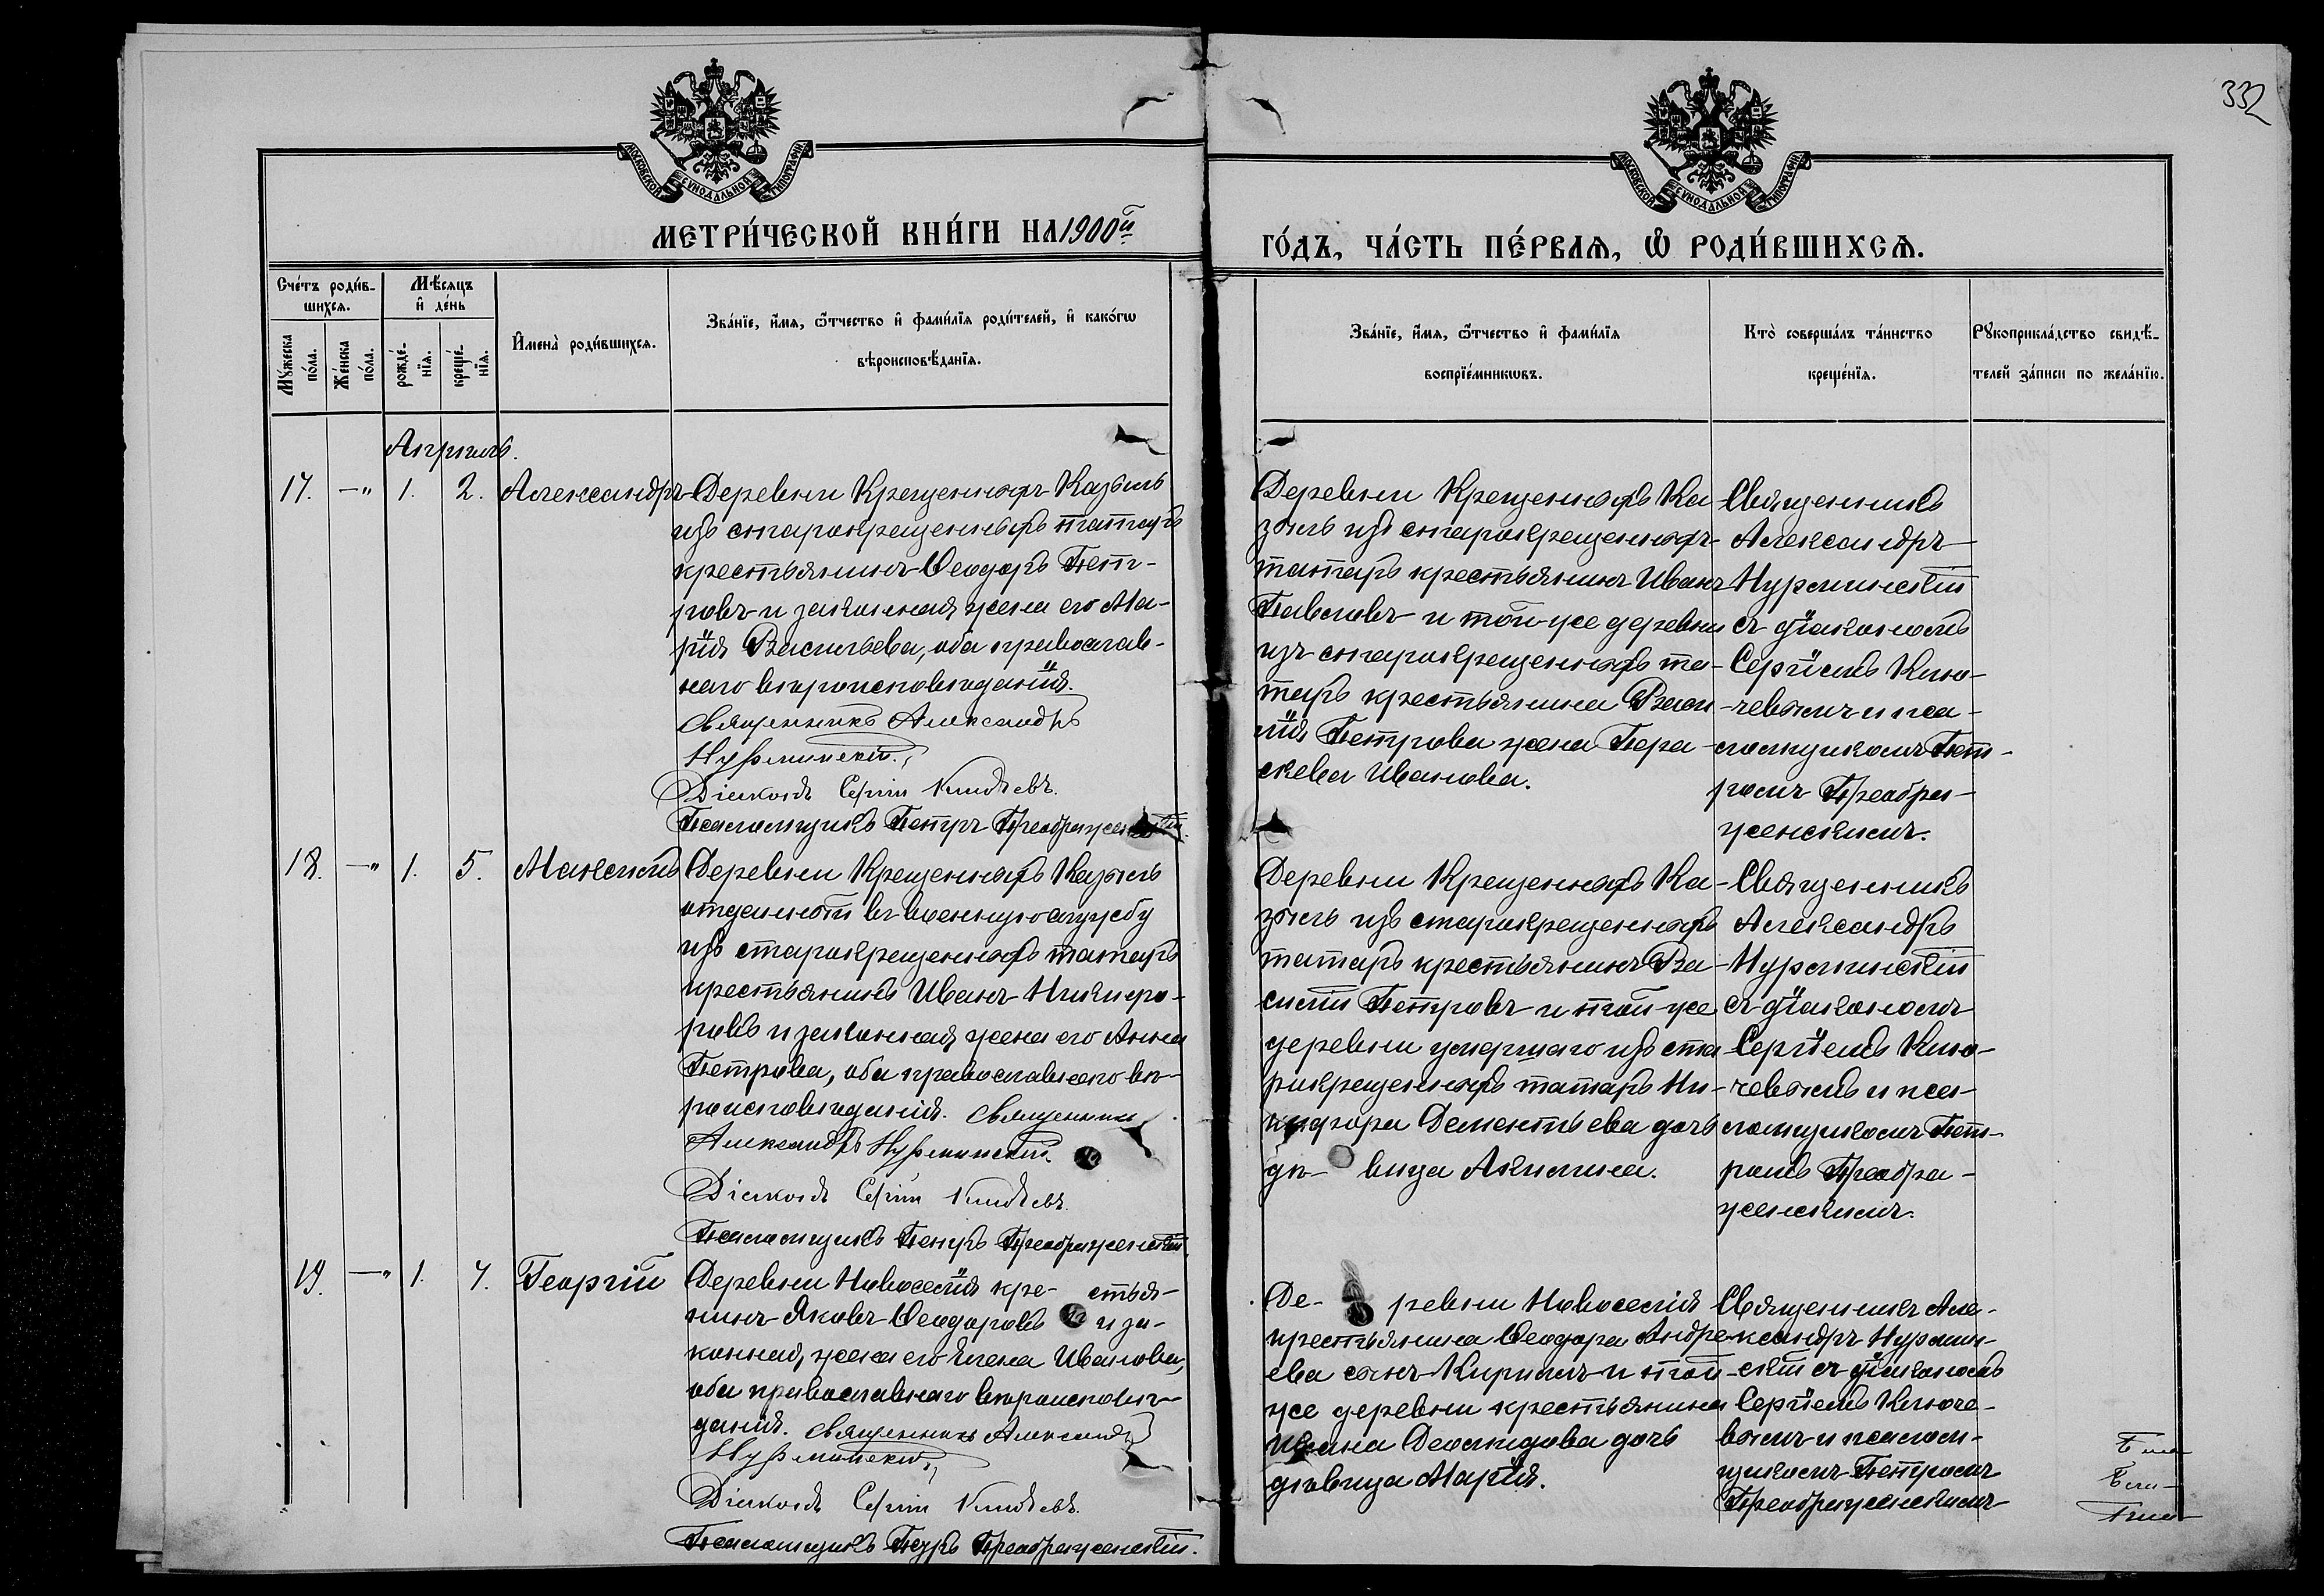 332
МОСКОВСКОЙ СѴНОДАЛЬНОЙ ТИПОГРАФІИ
МОСКОВСКОЙ СѴНОДАЛЬНОЙ ТИПОГРАФІИ
МЕТРИ́ЧЕСКОЙ КНИ́ГИ НА 1900й
ГО́ДЪ, ЧА́СТЬ ПЕ́РВАѦ, Ѡ҆ РОДИ́ВШИХСѦ.
Сче́тъ роди́в-
шихся.
Мꙋ́жеска по́ла.
Же́нска по́ла.
Мѣ́сяцъ
и҆ де́нь
рожде́-нїя.
креще́-нїя.
И҆мена̀ роди́вшихся.
Зва́нїе, и҆́мя, ѻ҆́тчество и҆ фами́лїя роди́телей, и҆ како́гѡ
вѣроисповѣ́данїя.
Зва́нїе, и҆́мя, ѻ҆́тчество и҆ фами́лїя
воспрїе́мникѡвъ.
Кто̀ соверша́лъ та́инство
креще́нїя.
Рꙋкоприкла́дство свидѣ́-
телей за́писи по жела́нїю.
Апрѣль.
17. —" 1. 2. Александръ
Деревни Крещеныхъ Казыль
изъ старокрещеныхъ татаръ
крестьянинъ Ѳеодоръ Пет-
ровъ и законная жена его Ма-
рія Васильева, оба православ-
наго вѣроисповѣданія.
Священникъ Александръ
Нурминскій.
Діаконъ Сергій Ключевъ.
Псаломщикъ Петръ Преображенскій.
Деревни Крещеныхъ Ка-
зыль изъ старокрещеныхъ
татаръ крестьянинъ Иванъ
Павловъ и той же деревни
изъ старокрещеныхъ та-
таръ крестьянина Васи
лія Петрова жена Пара-
скева Иванова.
Священникъ
Александръ
Нурминскій
съ діакономъ
Сергіемъ Клю-
чевымъ и пса-
ломщикомъ Пет-
ромъ Преобра-
женскимъ.
18. —" 1. 5. Максимъ
Деревни Крещеныхъ Казыль
отданный въ военную службу
изъ старокрещеныхъ татаръ
крестьянинъ Иванъ Никифо-
ровъ и законная жена его Анна
Петрова, оба православнаго вѣ-
роисповѣданія. Священникъ
Александръ Нурминскій.
Діаконъ Сергій Ключевъ.
Псаломщикъ Петръ Преображенскій.
Деревни Крещеныхъ Ка-
зыль изъ старокрещеныхъ
татаръ крестьянинъ Ва-
силій Петровъ и той же
деревни умершаго изъ ста
рокрещеныхъ татаръ Ни-
кифора Дементьева дочь
дѣ- вица Акилина.
Священникъ
Александръ
Нурминскій
съ діакономъ
Сергіемъ Клю-
чевымъ и пса-
ломщикомъ Пет-
ромъ Преобра-
женскимъ.
19. —" 1. 7. Георгій
Деревни Новоселія кре- стья-
нинъ Яковъ Ѳеодоровъ и за-
конная жена его Елена Иванова,
оба православнаго вѣроисповѣ-
данія. Священникъ Александръ
Нурминскій,
Діаконъ Сергій Ключевъ.
Псаломщикъ Петръ Преображенскій.
Де- ревни Новоселія
крестьянина Ѳеодора Андре-
ева сынъ Кириллъ и той
же деревни крестьянина
Ивана Леонидова дочь
дѣвица Марія.
Священникъ Але-
ксандръ Нурмин-
скій съ діакономъ
Сергіемъ Ключе-
вымъ и псалом-
щикомъ Петромъ
Преображенскимъ